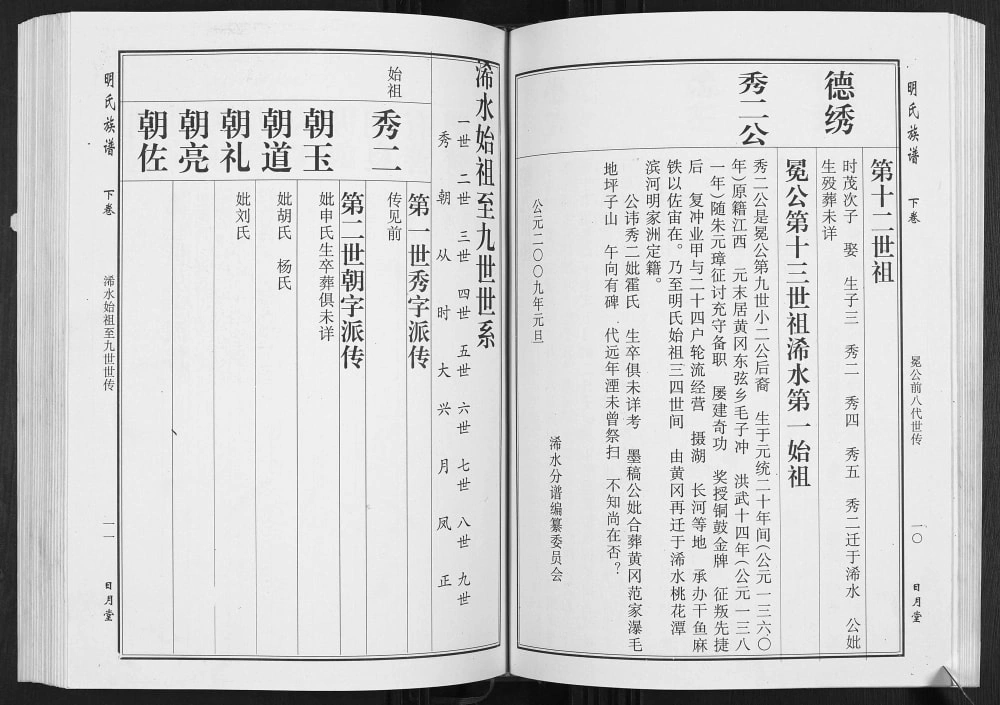 明氏族谱
下卷
冕公前八代世传
一〇
日月堂
德绣
第十二世祖
时茂次子　娶　生子三　秀二　秀四　秀五　秀二迁于浠水　公妣
生殁葬未详
秀二公
冕公第十三世祖浠水第一始祖
秀二公是冕公第九世小二公后裔　生于元统二十年间(公元一三六〇
年)原籍江西　元末居黄冈东弦乡毛子冲　洪武十四年(公元一三八
一年)随朱元璋征讨充守备职　屡建奇功　奖授铜鼓金牌　征叛先捷
后　复冲业甲与二十四户轮流经营　摄湖　长河等地　承办干鱼麻
铁以佐宙在。乃至明氏始祖三四世间　由黄冈再迁于浠水桃花潭
滨河明家洲定籍。
公讳秀二妣霍氏　生卒俱未详考　墨稿公妣合葬黄冈范家瀑毛
地坪子山　午向有碑　代远年湮未曾祭扫　不知尚在否？
浠水分谱编纂委员会
公元二〇〇九年元旦
浠水始祖至九世世系
一世　二世　三世　四世　五世　六世　七世　八世　九世
秀　朝　从　时　大　兴　月　凤　正
始祖
第一世秀字派传
秀二
传见前
第二世朝字派传
朝玉
妣申氏生卒葬俱未详
朝道
妣胡氏　杨氏
朝礼
妣刘氏
朝亮
朝佐
明氏族谱
下卷
浠水始祖至九世世传
一一
日月堂